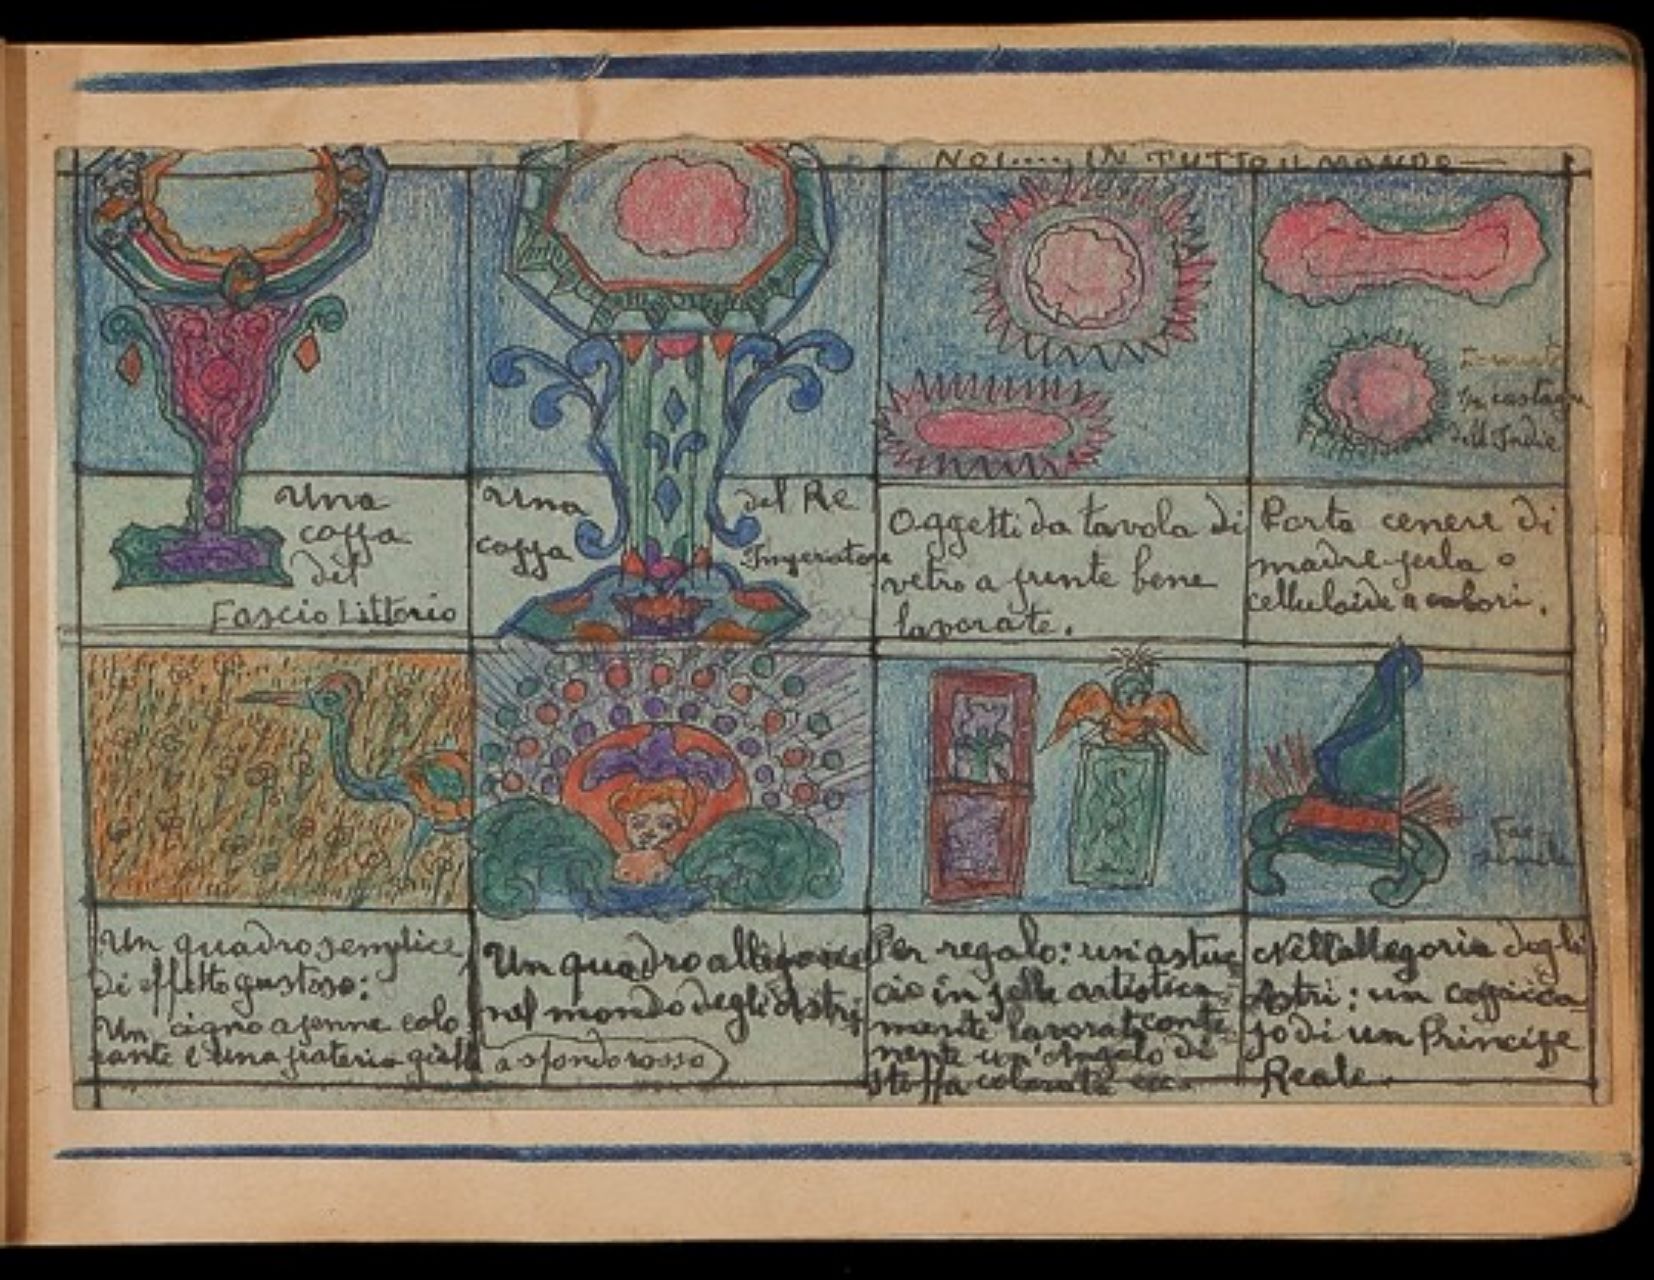 NOI.... IN TUTTO IL MONDO
Una
coppa
del
Fascio Littorio
Una
coppa
del Re
Imperatore
Oggetti da tavola di
vetro a punte bene
lavorate.
in castagna
dell'Indie
Porta cenere di
madre-perla o
celluloide a colori.
Un quadro semplice,
di effetto gustoso:
Un cigno a penne colo-
rante e una prateria gialla
Un quadro allegorico
nel mondo degli Astri
a sfondo rosso
Per regalo: un'astuc
cio in pelle artistica-
mente lavorat conte-
nente un'Angelo di
stoffa colorata ecc.
Fac-
simile
Nell'allegoria degli
Astri: un coppicca
po di un Principe
Reale.